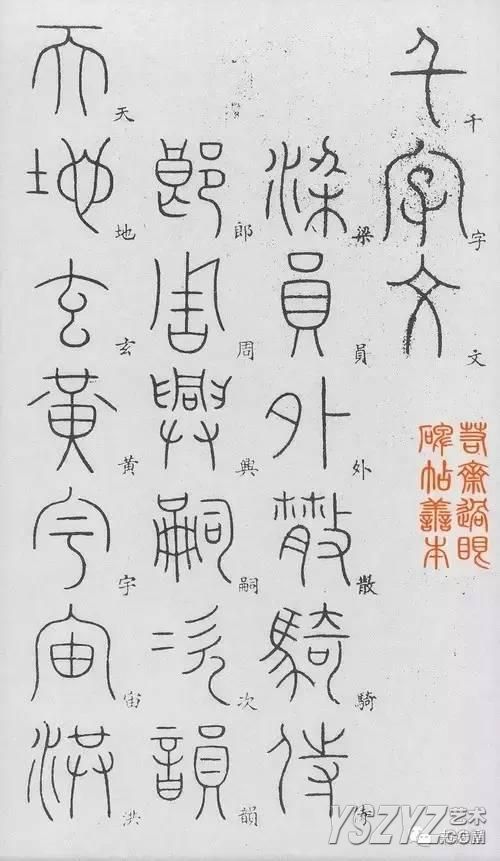 千字文
千字文
齋過眼
碑帖善本
梁員外散騎侍
梁員外散騎
郎周興嗣次韻
郎周興嗣次韻
天地玄黃宇宙洪
天地玄黃宇宙洪
YSZYZ
艺术